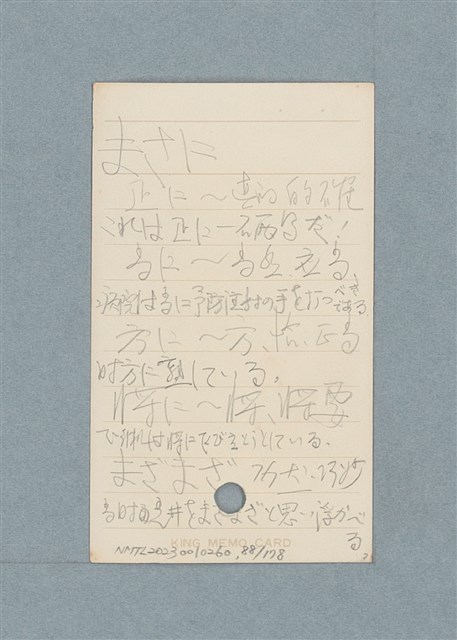 まさに
正に〜真的 的確
これは正に一石両鳥だ！
当に〜当然、应当、
病院は当に予防注射の手を打つべきである
方に〜方、恰、正当
時方に熟している。
将に〜将、将要
彼は将にたび立とうとしている、
まざまざ
当時の をまざまざと思い浮かべる
KING MEMO CARD
NMTL20230010260, 88/178